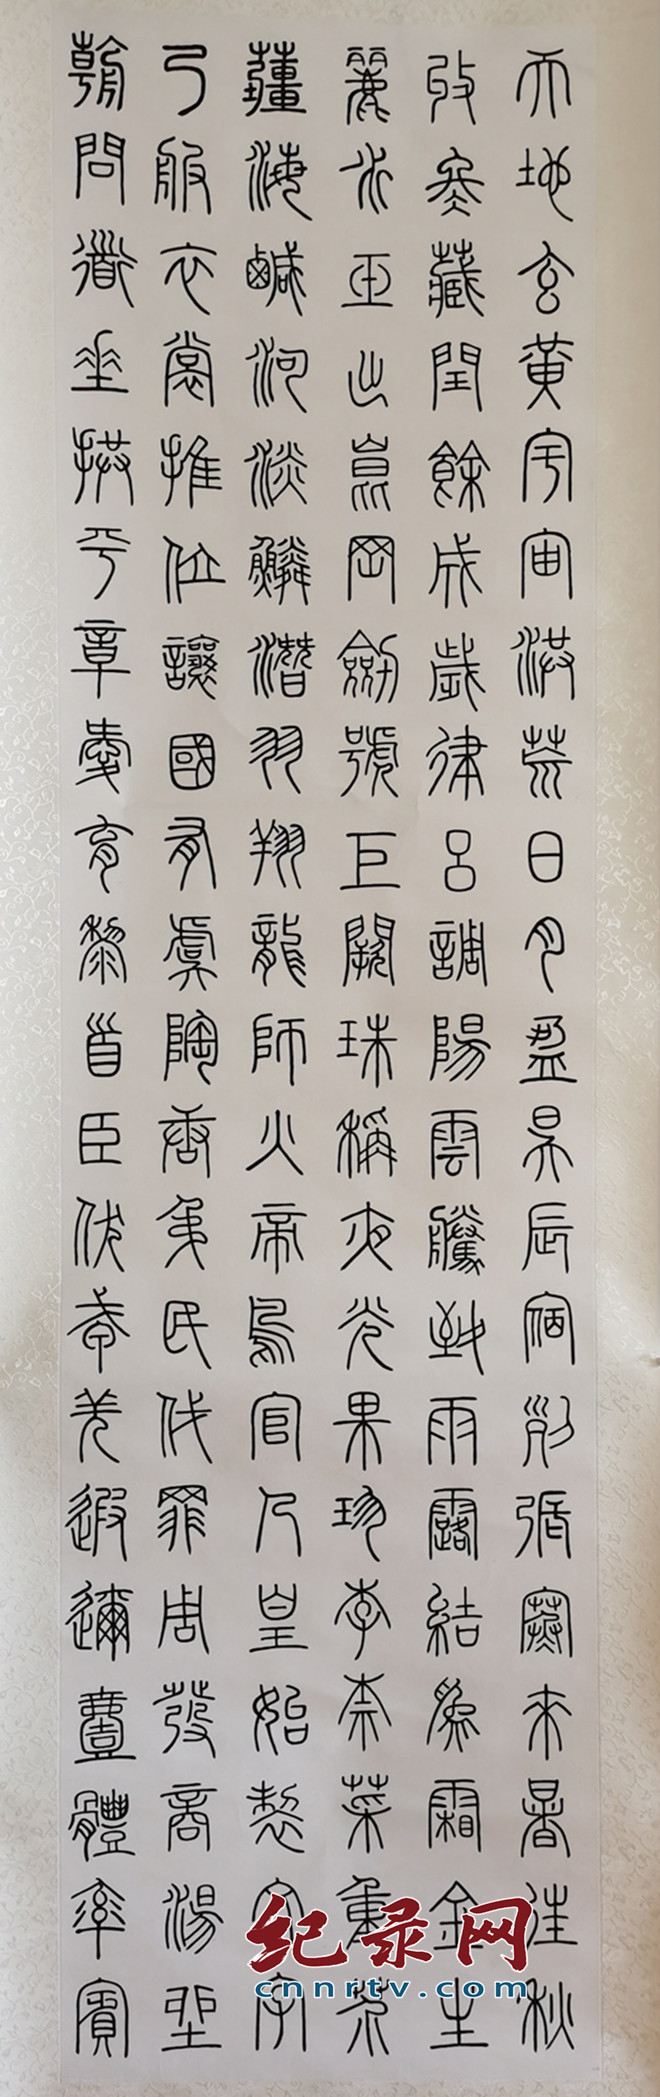 天地玄黃宇宙洪荒日月盈昃辰宿列張寒來暑往秋
收冬藏閏餘成歲律呂調陽雲騰致雨露結為霜金生
麗水玉出崑岡劍號巨闕珠稱夜光果珍李柰菜重芥
薑海鹹河淡鱗潛羽翔龍師火帝鳥官人皇始製文字
乃服衣裳推位讓國有虞陶唐弔民伐罪周發商湯坐
朝問道垂拱平章愛育黎首臣伏戎羌遐邇壹體率賓
纪录网
cnnrtv.com